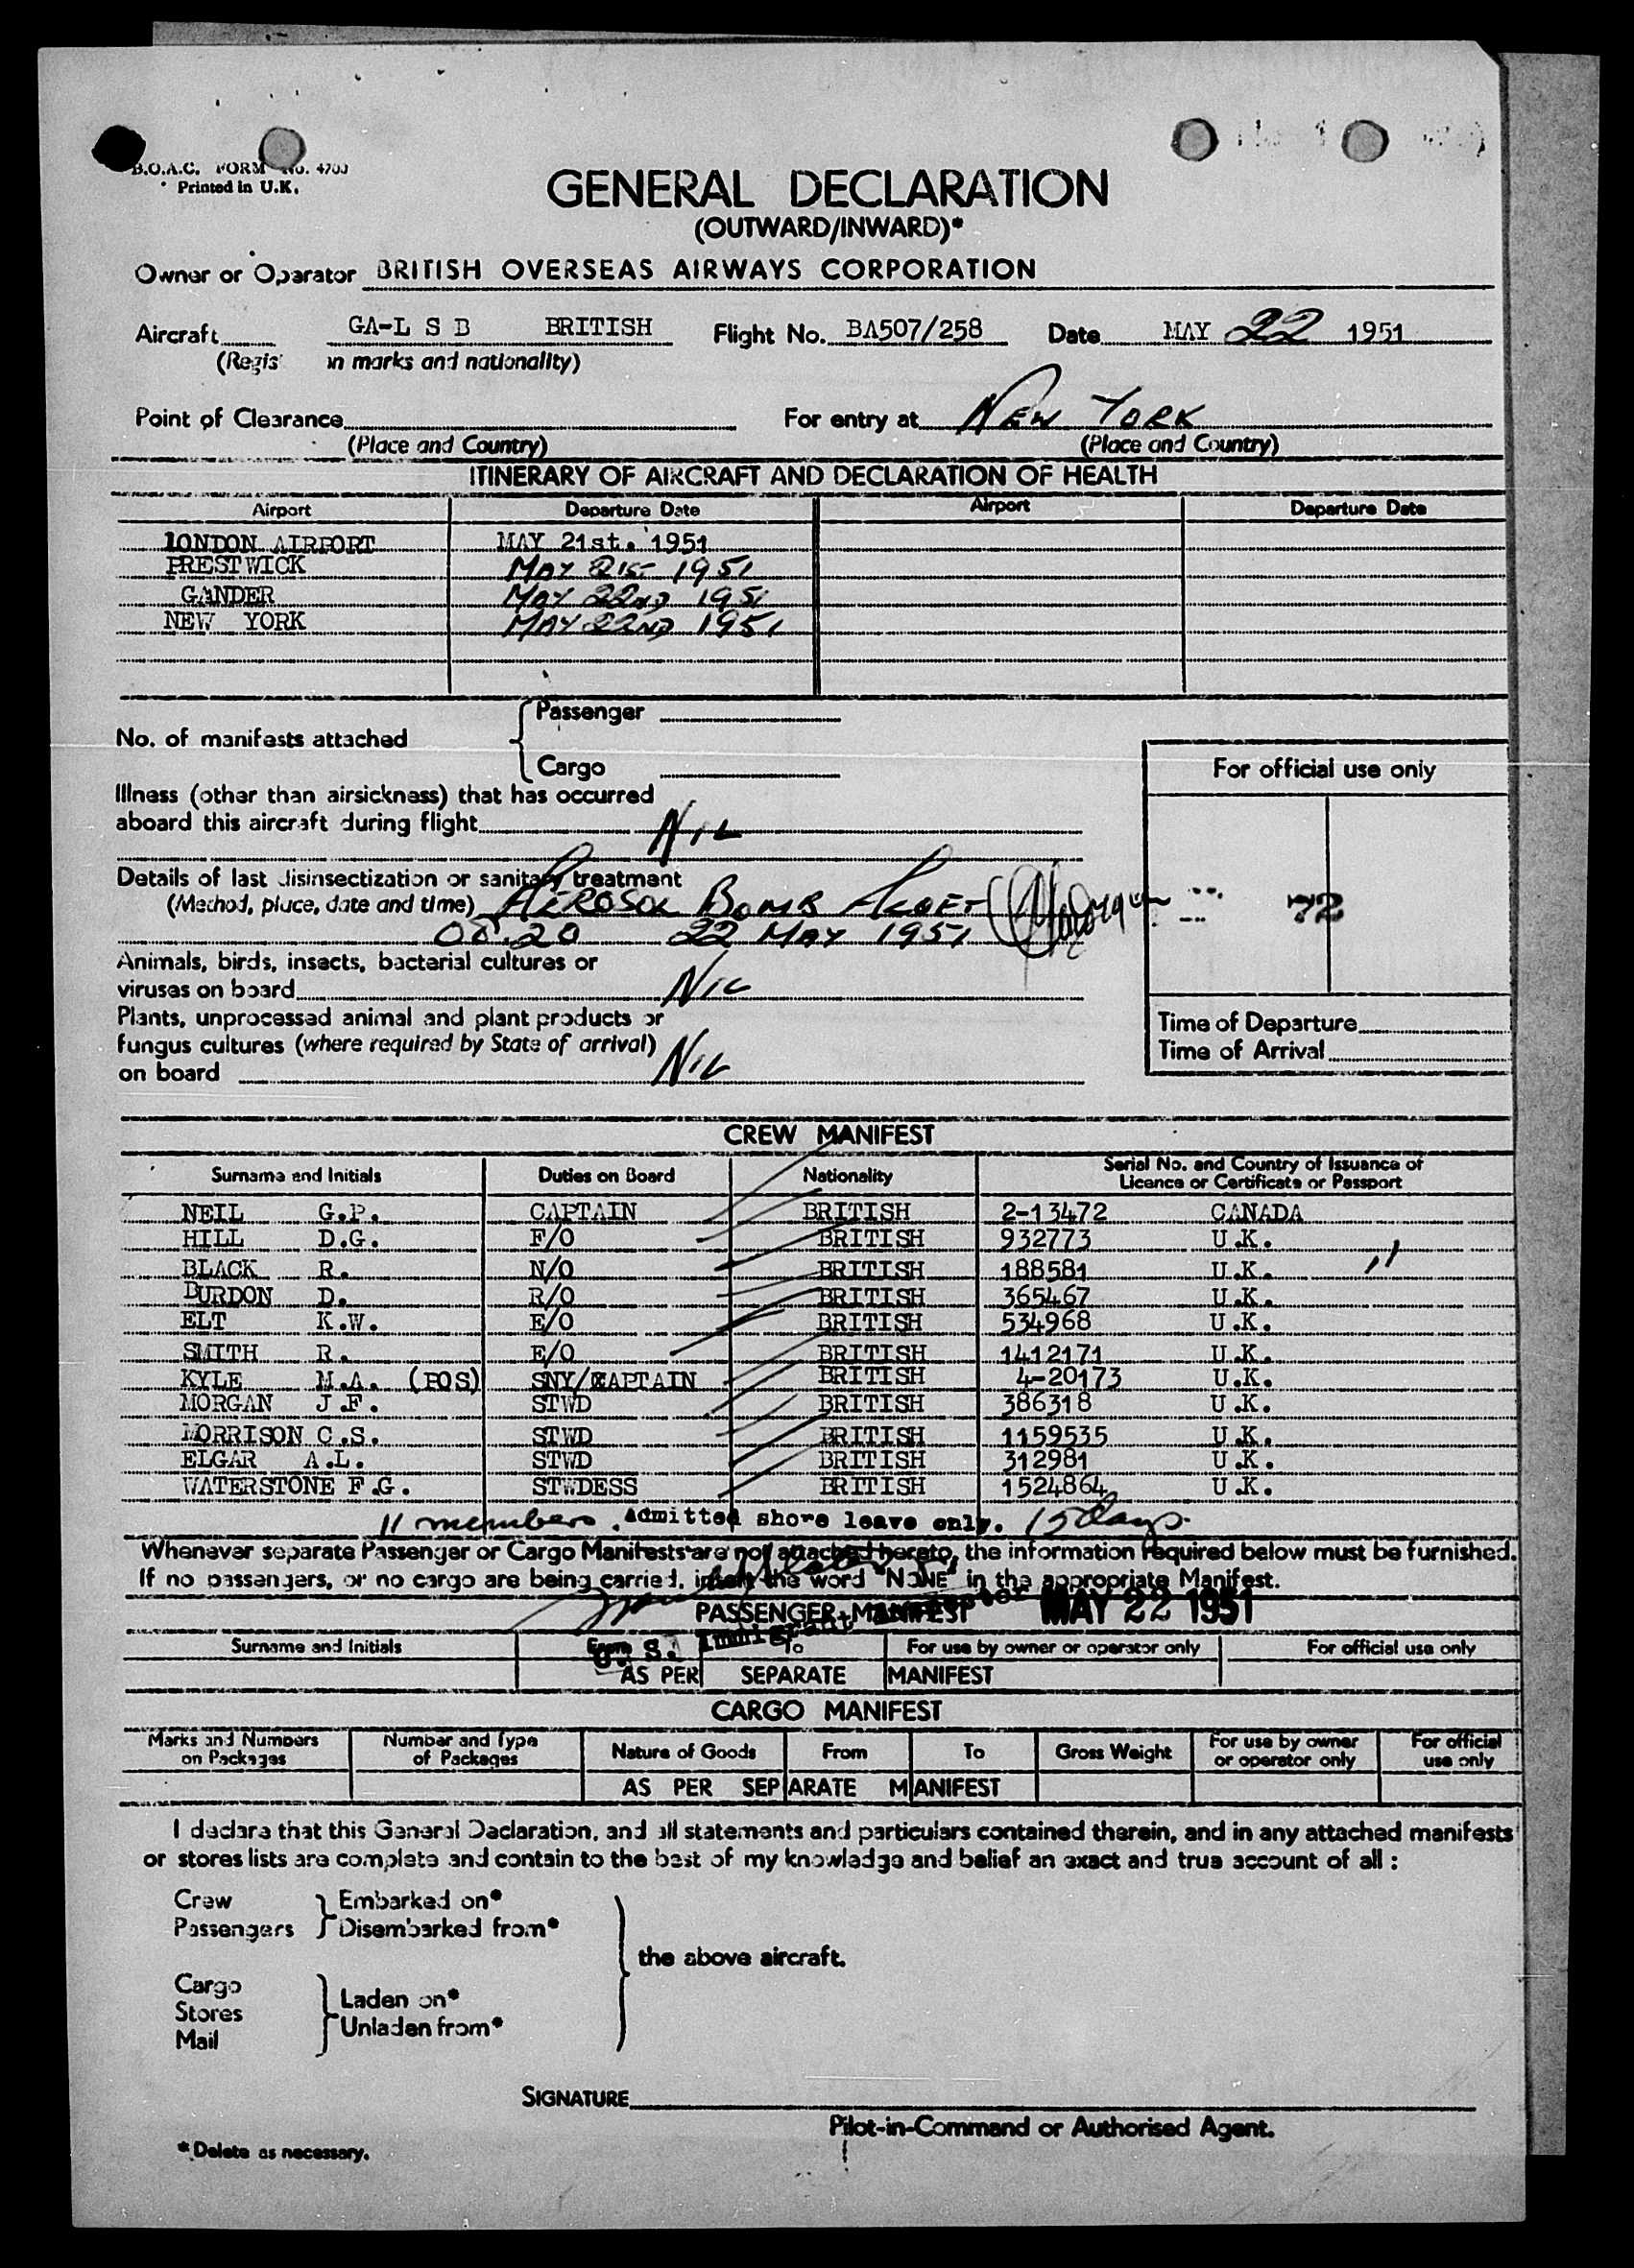 B.O.A.C. FORM No.
Printed in U.K.
GENERAL DECLARATION
(OUTWARD/INWARD)*
Owner or Operator BRITISH OVERSEAS AIRWAYS CORPORATION
Aircraft GA-L S B BRITISH Flight No. BA507/258 Date MAY 22 1951
(Regis n marks and nationality)
Point of Clearance For entry at NEW YORK
(Place and Country) (Place and Country)
ITINERARY OF AIRCRAFT AND DECLARATION OF HEALTH
Airport Departure Date Airport Departure Date
LONDON AIRPORT MAY 21st. 1951
PRESTWICK MAY 21ST 1951
GANDER MAY 22ND 1951
NEW YORK MAY 22ND 1951
No. of manifests attached
Passenger
Cargo
For official use only
Illness (other than airsickness) that has occurred
aboard this aircraft during flight NIL
Details of last disinsectization or sanitary treatment
(Method, place, date and time) AEROSOL BOMB
22 MAY 1951
Animals, birds, insects, bacterial cultures or
viruses on board NIL
Plants, unprocessed animal and plant products or
fungus cultures (where required by State of arrival)
on board NIL
Time of Departure
Time of Arrival
CREW MANIFEST
Surname and Initials Duties on Board Nationality Serial No. and Country of Issuance of
Licence or Certificate or Passport
NEIL G.P. CAPTAIN BRITISH 2-13472 CANADA
HILL D.G. F/O BRITISH 932773 U.K.
BLACK R. N/O BRITISH 188581 U.K.
BURDON D. R/O BRITISH 365467 U.K.
ELT K.W. E/O BRITISH 534968 U.K.
SMITH R. E/O BRITISH 1412171 U.K.
KYLE M.A. (POS) SNY/CAPTAIN BRITISH 4-20173 U.K.
MORGAN J.F. STWD BRITISH 386318 U.K.
MORRISON C.S. STWD BRITISH 1159535 U.K.
ELGAR A.L. STWD BRITISH 312981 U.K.
WATERSTONE F.G. STWDESS BRITISH 1524864 U.K.
11 members Admitted shore leave only. 15 days
Whenever separate Passenger or Cargo Manifests are not attached hereto, the information required below must be furnished.
If no passengers, or no cargo are being carried, insert the word "NONE" in the appropriate Manifest.
PASSENGER MANIFEST MAY 22 1951
U. S. Immigrant
Surname and Initials From To For use by owner or operator only For official use only
AS PER SEPARATE MANIFEST
CARGO MANIFEST
Marks and Numbers on Packages Number and Type of Packages Nature of Goods From To Gross Weight For use by owner or operator only For official use only
AS PER SEPARATE MANIFEST
I declare that this General Declaration, and all statements and particulars contained therein, and in any attached manifests
or stores lists are complete and contain to the best of my knowledge and belief an exact and true account of all :
Crew Embarked on*
Passengers Disembarked from*
the above aircraft.
Cargo
Stores Laden on*
Mail Unladen from*
SIGNATURE
Pilot-in-Command or Authorised Agent.
*Delete as necessary.